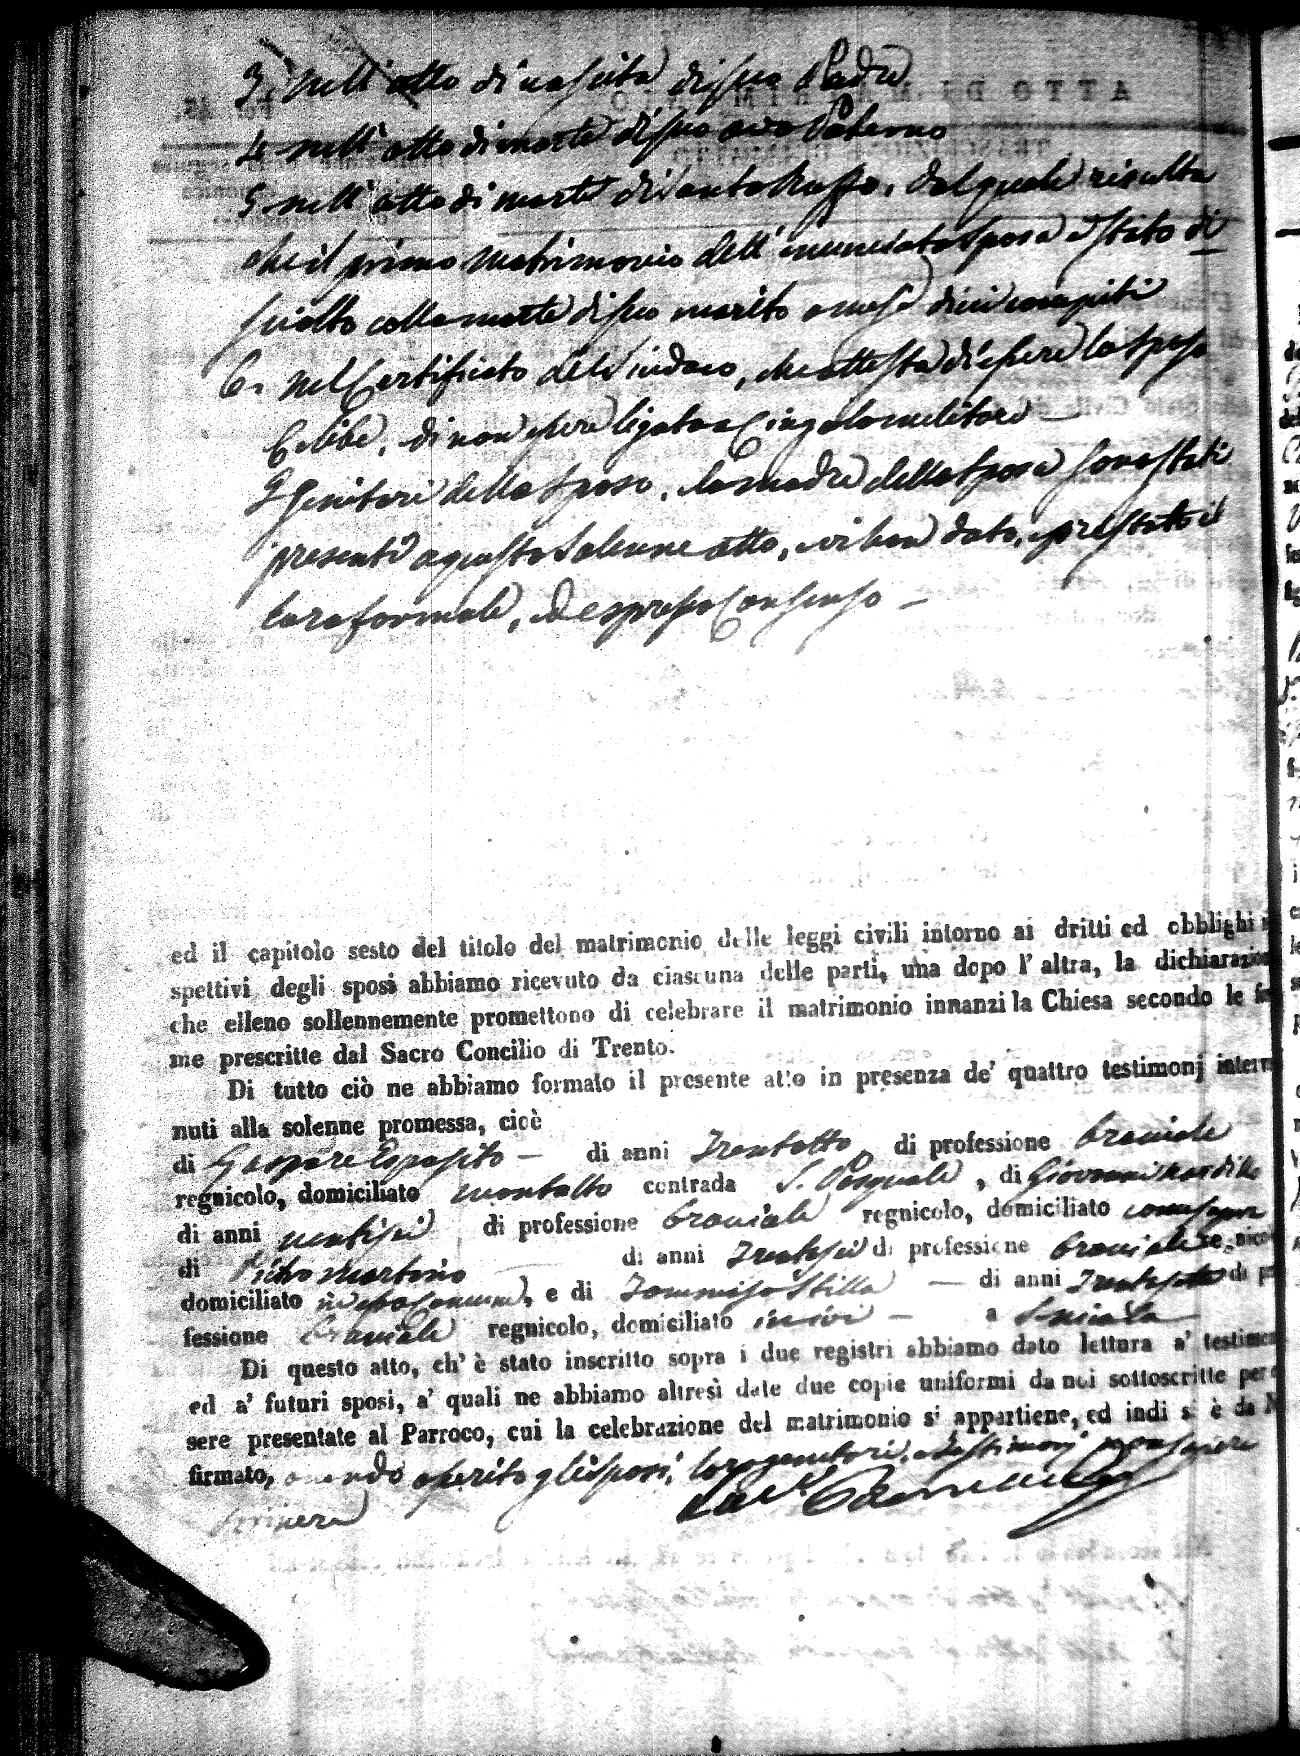 3. nell'atto di nascita di suo Padre
4. nell'atto di morte di suo avo Paterno
5. nell'atto di morte di Santo Russo, dal quale risulta
che il primo matrimonio dell'enunciata sposa è stato di
sciolto colla morte di suo marito a mesi dieci compiti
6. nel Certificato del Sindaco, che attesta di essere lo sposo
Celibe, di non essere ligato a Cingolo militare —
I Genitori dello sposo, la madre della sposa sono stati
presenti a questo solenne atto, vi han dato, e prestato il
loro formale, ed espresso Consenso —
ed il capitolo sesto del titolo del matrimonio delle leggi civili intorno ai dritti ed obblighi
spettivi degli sposi abbiamo ricevuto da ciascuna delle parti, una dopo l'altra, la dichiarazion
che elleno sollennemente promettono di celebrare il matrimonio innanzi la Chiesa secondo le for
me prescritte dal Sacro Concilio di Trento.
Di tutto ciò ne abbiamo formato il presente atto in presenza de' quattro testimonj interve
nuti alla solenne promessa, cioè
di Gaspare Esposito — di anni Trentotto di professione Braciale
regnicolo, domiciliato Montalto contrada S. Pasquale, di Giovanni
di anni ventisei di professione Braciale regnicolo, domiciliato come sopra
di Pietro Martorio di anni Trentasei di professione Braciale regnico
domiciliato in questo Comune, e di Tommaso Stilla — di anni Trentasette di pr
fessione Braciale regnicolo, domiciliato — a
Di questo atto, ch'è stato inscritto sopra i due registri abbiamo dato lettura a' testimon
ed a' futuri sposi, a' quali ne abbiamo altresì date due copie uniformi da noi sottoscritte per e
sere presentate al Parroco, cui la celebrazione del matrimonio si appartiene, ed indi si è da N
firmato, avendo asserito gli sposi, loro genitori, e testimonj non sapere
scrivere